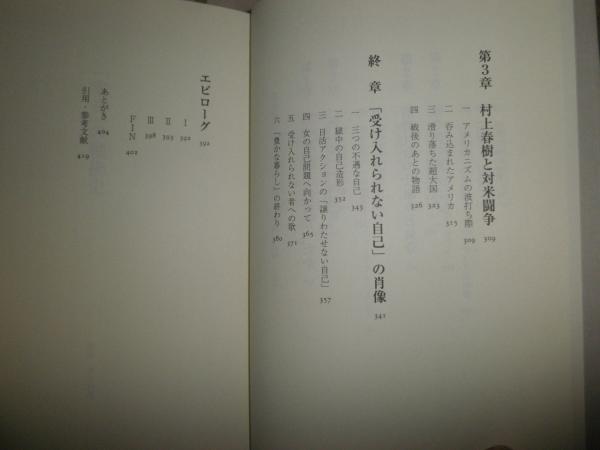 第3章 村上春樹と対米闘争 309
一 アメリカニズムの波打ち際 309
二 呑み込まれたアメリカ 315
三 滑り落ちた超大国 323
四 戦後のあとの物語 326
終章 「受け入れられない自己」の肖像 341
一 三つの不遇な自己 343
二 獄中の自己造形 352
三 日活アクションの「譲りわたせない自己」 357
四 女の自己問題へ向かって 365
五 受け入れられない者への歌 371
六 「豊かな暮らし」の終わり 380
エピローグ 392
Ⅰ 392
Ⅱ 393
Ⅲ 398
FIN 402
あとがき 404
引用・参考文献 409